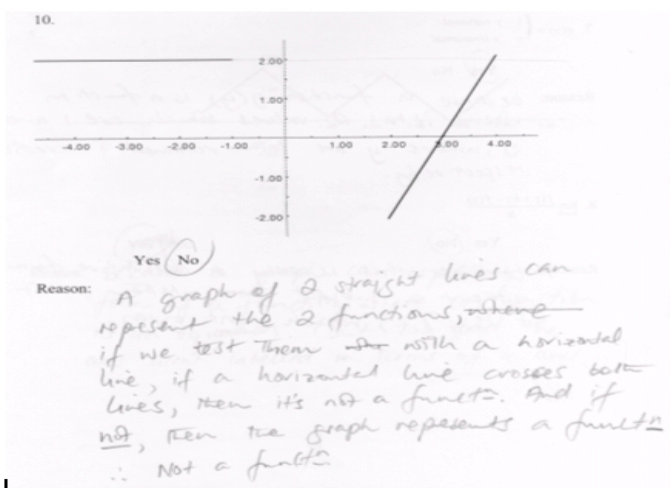 10.
2.00
1.00
-4.00 -3.00 -2.00 -1.00 1.00 2.00 3.00 4.00
-1.00
-2.00
Yes No
Reason: A graph of 2 straight lines can
represent the 2 functions, where
if we test them with a horizontal
line, if a horizontal line crosses both
lines, then it's not a functn. And if
not, then the graph represents a functn
∴ Not a functn